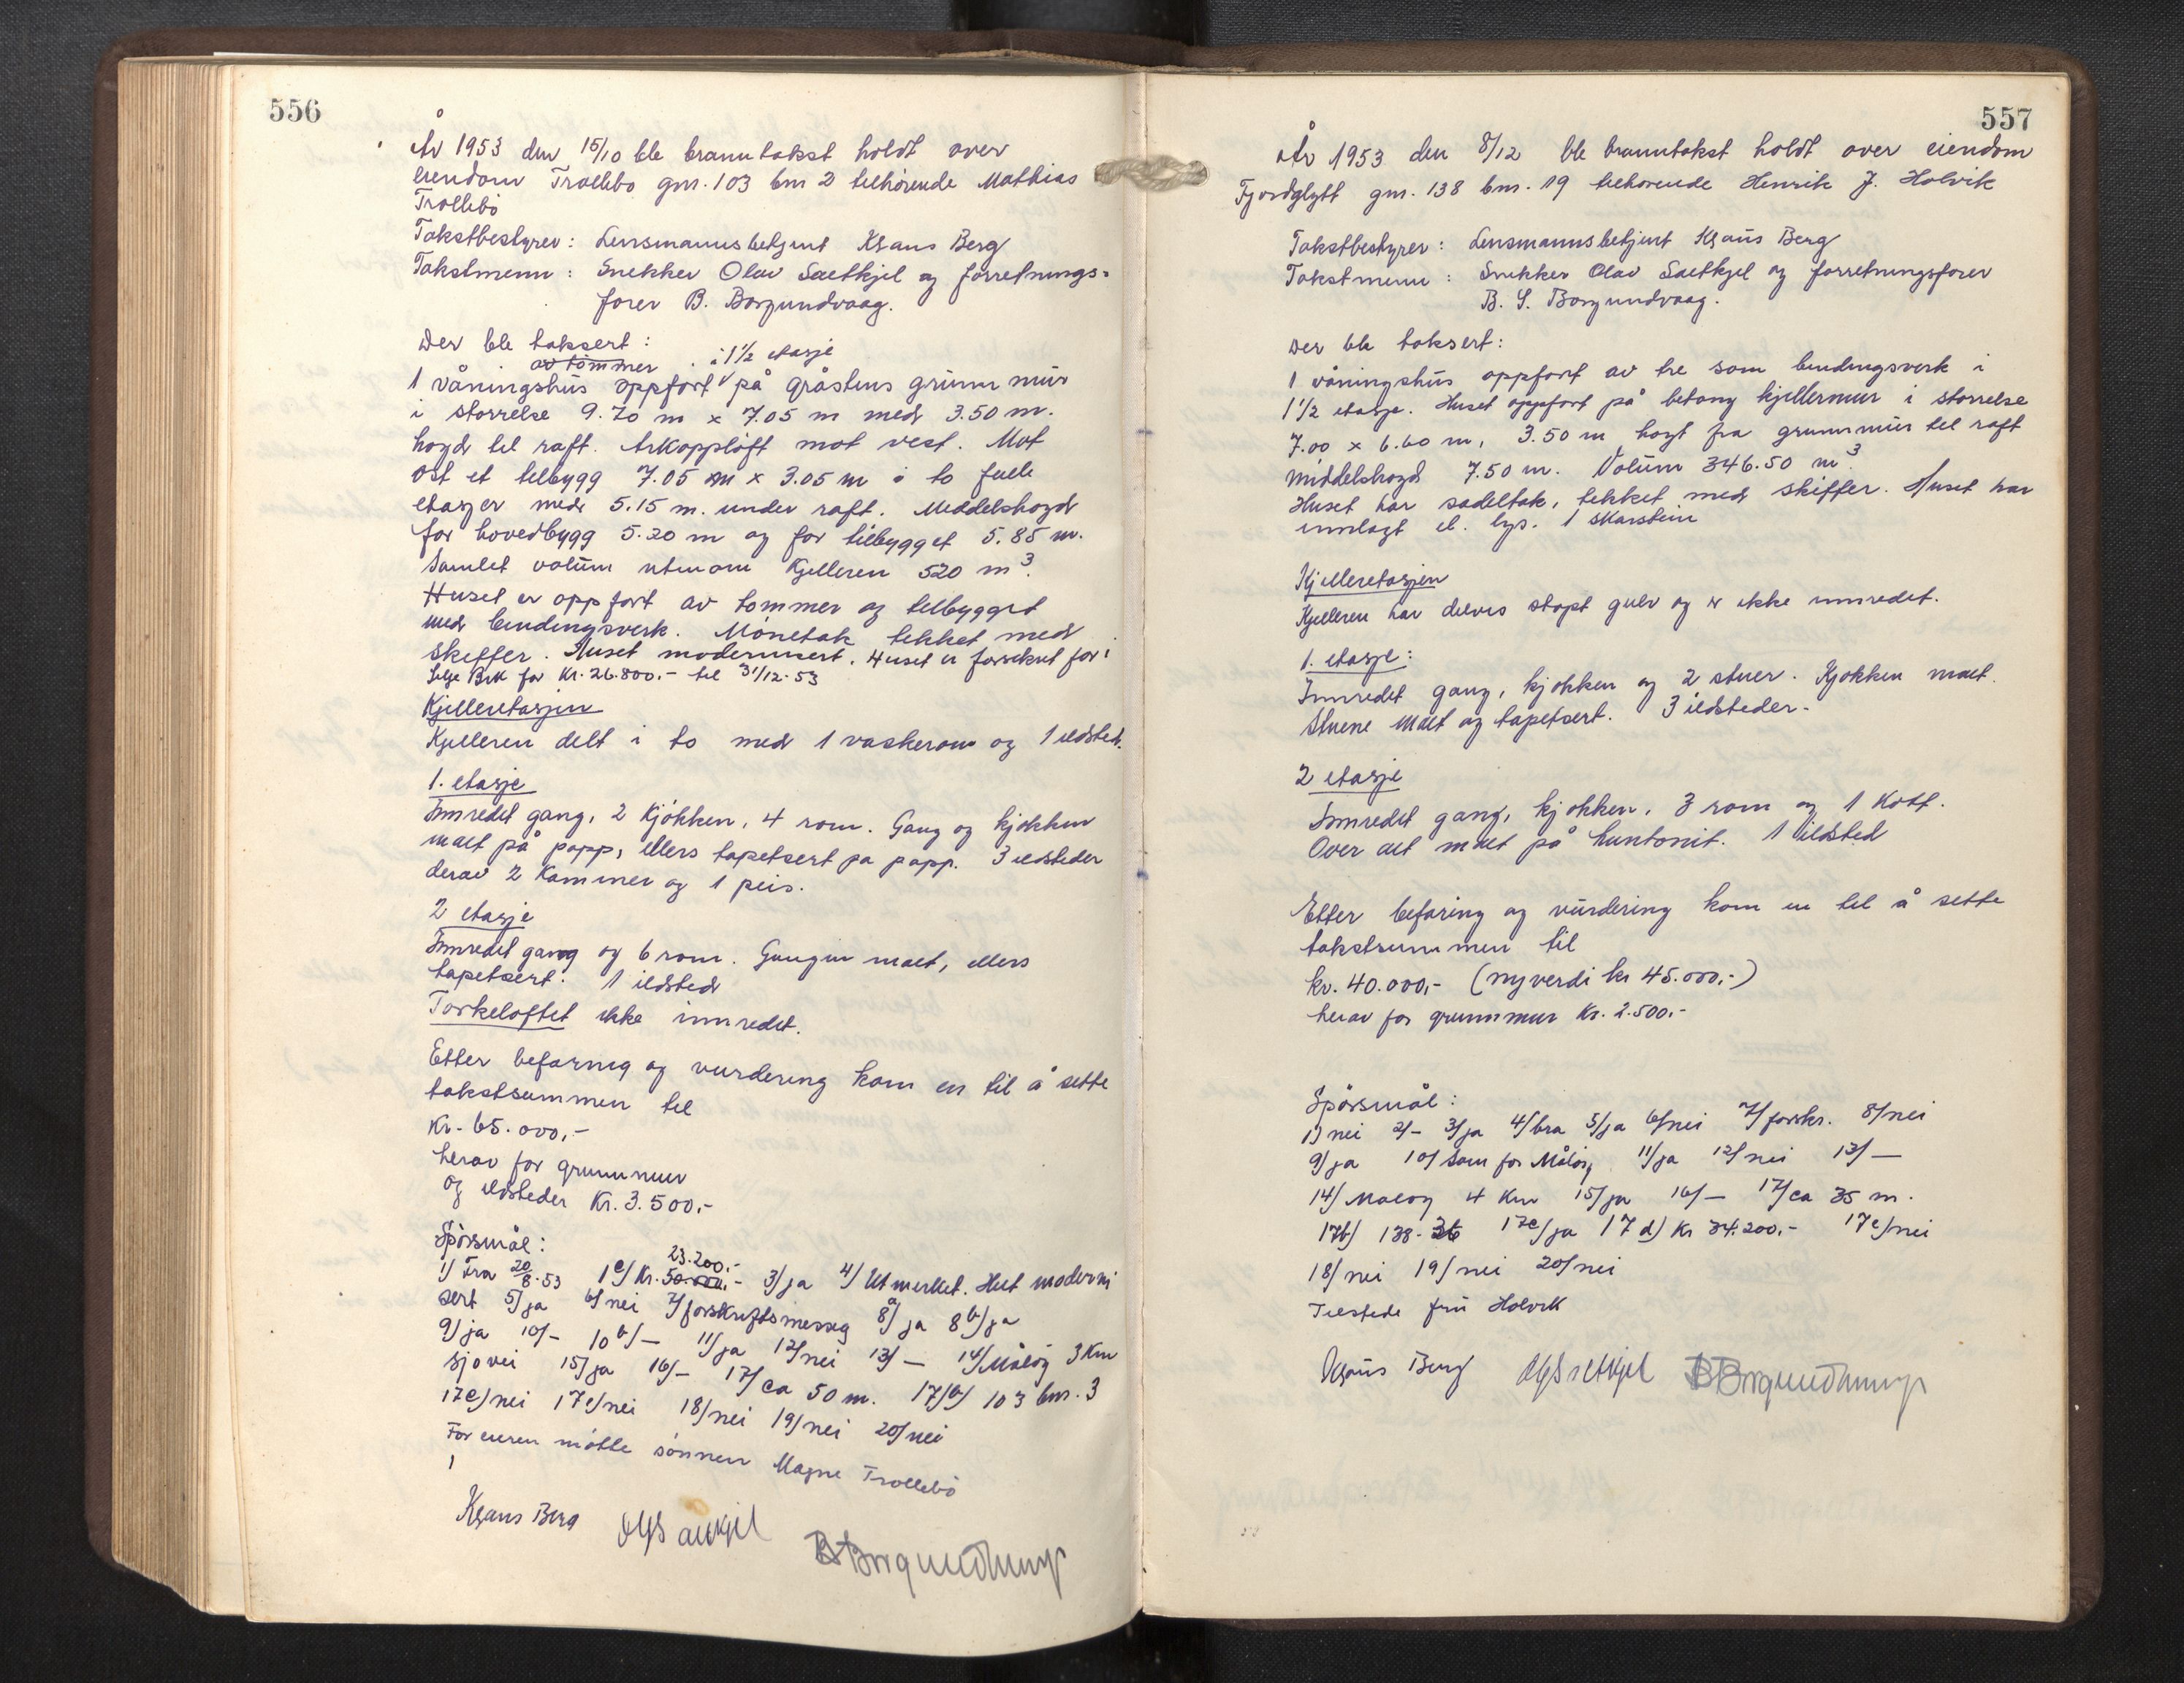 556
År 1953 den 15/10 ble branntakst holdt over
eiendom Trollebø gnr. 103 bnr 2 tilhørende Mathias
Trollebö
Takstbestyrer: Lensmannsbetjent Klaus Berg
Takstmenn: Snekker Olav Saetkjel og forretnings-
fører B. Borgundvaag.
Der ble taksert:
av tømmer i 1 1/2 etasje
1 våningshus oppført på gråstens grunn mur
i størrelse 9.70 m x 7.05 m med 3.50 m.
høgd til raft. Arkoppløft mot vest. Mot
øst et tilbygg 7.05 m x 3.05 m i to fulle
etasjer med 5.15 m. under raft. Middelshøgd
for hovedbygg 5.20 m og for tilbygget 5.85 m.
Samlet volum utenom kjelleren 520 m3.
Huset er oppført av tømmer og tilbygget
med bindingsverk. Mønetak tekket med
skiffer. Huset modernisert. Huset er forsikret for i
Selje Brk for kr. 26.800.- til 31/12-53
Kjelleretasjen
Kjelleren delt i to med 1 vaskerom og 1 ildsted.
1. etasje
Innredet gang, 2 kjøkken, 4 rom. Gang og kjøkken
malt på papp, ellers tapetsert på papp. 3 ildsteder
derav 2 kaminer og 1 peis.
2 etasje
Innredet gang og 6 rom. Gangen malt, ellers
tapetsert. 1 ildsted
Tørkeloftet ikke innredet.
Etter befaring og vurdering kom en til å sette
takstsummen til
Kr. 65.000,-
herav for grunnmur
og ildsteder Kr. 3.500,-
Spörsmål:
23.200.-
1) Fra 20/8-53 1c) Kr. 50.000,- 3) ja 4) Utmerket. Helt moderni
sert 5) ja 6) nei 7) forskriftsmessig 8a) ja 8b) ja
9) ja 10) - 10b) - 11) ja 12) nei 13) - 14) Måløy 3 Km
sjøvei 15) ja 16) - 17) ca 50 m. 17b) 103 bnr. 3
17c) nei 17e) nei 18) nei 19) nei 20) nei
For eieren møtte sønnen Magne Trollebö
Klaus Berg OlSaetkjel BBorgundvaag
557
År 1953 den 8/12 ble branntakst holdt over eiendom
Fjordglytt gnr. 138 bnr. 19 tilhørende Henrik J. Holvik
Takstbestyrer: Lensmannsbetjent Klaus Berg
Takstmenn: Snekker Olav Saetkjel og forretningsfører
B. S. Borgundvaag.
Der ble taksert:
1 våningshus oppført av tre som bindingsverk i
1 1/2 etasje. Huset oppført på betong kjellermur i størrelse
7.00 x 6.60 m, 3.50 m høgt fra grunnmur til raft
middelshøgd 7.50 m. Volum 346.50 m3.
Huset har sadeltak, tekket med skiffer. Huset har
innlagt el. lys. 1 skarstein
Kjelleretasjen
Kjelleren har delvis støpt gulv og er ikke innredet.
1. etasje:
Innredet gang, kjøkken og 2 stuer. Kjøkken malt.
Stuene malt og tapetsert. 3 ildsteder.
2 etasje
Innredet gang, kjøkken, 3 rom og 1 Kott.
Over alt malt på huntonit. 1 ildsted
Etter befaring og vurdering kom en til å sette
takstsummen til
kr. 40.000,- (nyverdi kr 45.000,-)
herav for grunnmur Kr. 2.500,-
Spörsmål:
1) nei 2) - 3) ja 4) bra 5) ja 6) nei 7) forskr. 8) nei
9) ja 10) Som for Måløy 11) ja 12) nei 13) -
14) Maløy 4 Km 15) ja 16) - 17) ca 35 m.
17b) 138-26 17c) ja 17d) Kr 34.200,- 17e) nei
18) nei 19) nei 20) nei
Tilstede fru Holvik
Klaus Berg OlSaetkjel BBorgundvaag